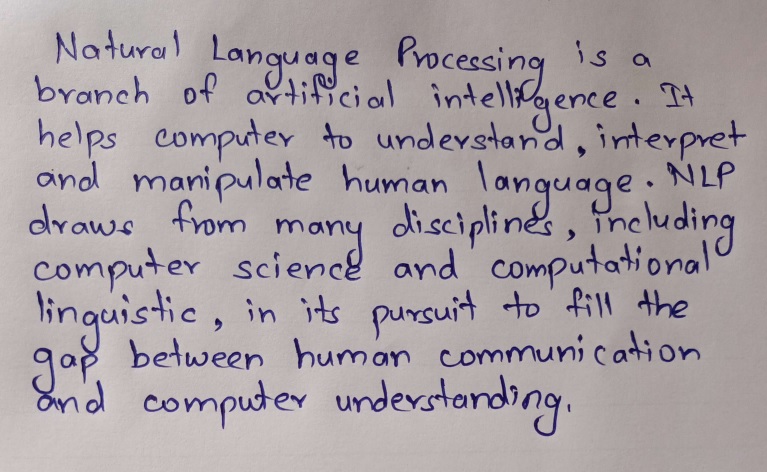 Natural Language Processing is a
branch of artificial intelligence. It
helps computer to understand, interpret
and manipulate human language. NLP
draws from many disciplines, including
computer science and computational
linguistic, in its pursuit to fill the
gap between human communication
and computer understanding.